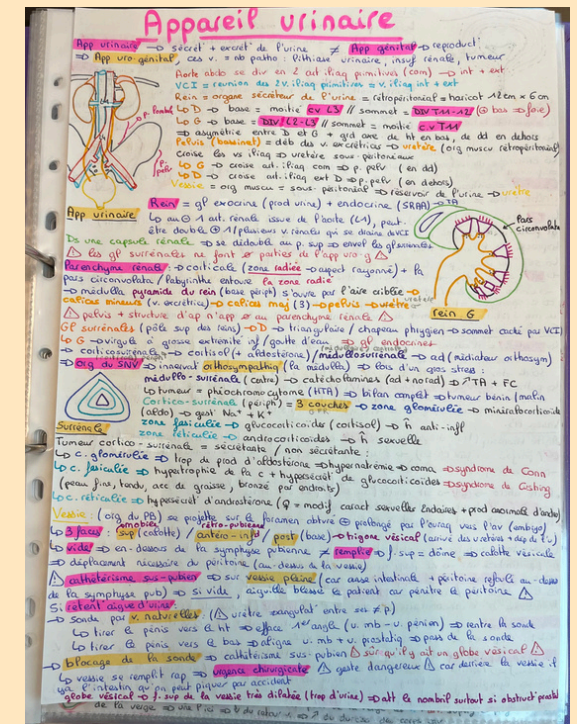 Appareil urinaire
App urinaire → sécrét° + excrét° de l'urine ≠ App génital → reproduct°
⇒ App uro-génital, ces v. = nb patho : lithiase urinaire, insuf rénale, tumeur
Aorte abdo se div en 2 art. iliaq primitives (com) → int + ext
VCI = réunion des 2 v. iliaq primitives = v. iliaq int + ext
Rein = organe sécréteur de l'urine = rétropéritonéal = haricot 12cm x 6cm
↳ D → base = moitié CV L3 // sommet = DIV T11-12 (⊕ bas ⇒ foie)
↳ G → base = DIV L2-L3 // sommet = moitié C.V T11
⇒ asymétrie entre D et G + grd axe de ht en bas, de dd en dehors
Pelvis (bassinet) = déb des v. excrétrices → uretère (org muscu rétropéritonéal)
croise les vs iliaq ⇒ uretère sous-péritonéaux
↳ G → croise art. iliaq com ⇒ p. pelv (en dd)
↳ D → croise art. iliaq ext ⇒ p. pelv (en dehors)
Vessie = org muscu = sous-péritonéal ⇒ réservoir de l'urine → urètre
App urinaire
Rein = gl exocrine (prod urine) + endocrine (SRAA) → TA
↳ au ⊖ 1 art. rénale issue de l'aorte (L1), peut.
être double ⊕ 1/plusieurs v. rénale qui se draine ds VCI
Ds une capsule rénale ⇒ se dédouble au p. sup ⇒ envel les gl surrénales
⚠ les gl surrénales ne font ∅ parties de l'app uro-g ⚠
Pars circonvoluta
Parenchyme rénale : → corticale (zone radiée → aspect rayonné) + la
pars circonvoluta / labyrinthe entoure la zone radié
→ médulla pyramide du rein (base périph) s'ouvre par l'aire criblée →
calices mineurs (v. excrétrice) → calices maj (3) → pelvis → uretère
rein G
⚠ pelvis + structure d'ap n'app ∅ au parenchyme rénale ⚠
Gl surrénales (pôle sup des reins) → D → triangulaire / chapeau phrygien → sommet caché par VCI
↳ G → virgule à grosse extrémité inf / goutte d'eau. ⇒ gl endocrines
→ corticosurrénale → cortisol (+ aldostérone) / médullosurrénale → ad (médiateur orthosym)
⇒ Org du SNV ⇒ innervat° orthosympathiq (la médulla) ⇒ lors d'un gros stress :
médullo-surrénale (centre) → catécholamines (ad + norad) ⇒ ↗TA + FC
↳ tumeur = phéochromocytome (HTA) → bilan complet ⇒ tumeur bénin / malin
Cortico-surrénale (périph) = 3 couches → zone glomérulée → minéralocorticoïde
(aldo) → gest° Na⁺ + K⁺
zone fasiculée → glucocorticoïdes (cortisol) → h̄ anti-infl
zone réticulée → androcorticoïdes → h̄ sexuelle
Surrénale
Tumeur cortico-surrénale = sécrétante / non sécrétante :
↳ c. glomérulée ⇒ trop de prod d'aldostérone ⇒ hypernatrémie → coma ⇒ syndrome de Conn
↳ c. fasiculée ⇒ hypertrophie de la c + hypersécrét° de glucocorticoïdes ⇒ syndrome de Cushing
(peau fine, tendu, acc de graisse, bronzé par endroits)
↳ c. réticulée ⇒ hypersécrét° d'androstérone (♀ = modif caract sexuelles 2ndaires + prod anormale d'andro)
Vessie : (org du PB) se projette sur le foramen obturé ⊕ prolongé par l'ouraq vers l'av (embryo)
↳ 3 faces : sup (calotte) / antéro-inf / post (base) → trigone vésical (arrivée des uretères + dép de l'u)
amobiles
rétro-pubienne
↳ vide → en-dessous de la symphyse pubienne ≠ remplie → f. sup = dôme ⇒ calotte vésicale
⇒ déplacement nécessaire du péritoine (au-dessus de la vessie)
⚠ cathétérisme sus-pubien ⇒ sur vessie pleine (car anse intestinale + péritoine refoulé au-dessus
de la symphyse pub) ⇒ si vide, aiguille blesse le patient car pénètre le péritoine ⚠
Si rétent° aigue d'urine :
→ sonde par v. naturelles : (⚠ urètre angulat° entre ses ≠ p.)
↳ tirer le pénis vers le ht → efface 1er angle (u. mb - u. pénien) ⇒ rentre la sonde
↳ tirer le pénis vers le bas ⇒ aligne u. mb + u. prostatiq ⇒ pass de la sonde
→ blocage de la sonde ⇒ cathétérisme sus-pubien ⚠ sûr qu'il y ait un globe vésical ⚠
↳ vessie se remplit rap ⇒ urgence chirurgicale ⚠ geste dangereux ⚠ car derrière la vessie il
ya l'intestin qu'on peut piquer par accident
globe vésical ⇒ f. sup de la vessie très dilatée (trop d'urine) ⇒ att le nombril surtout si obstruct°